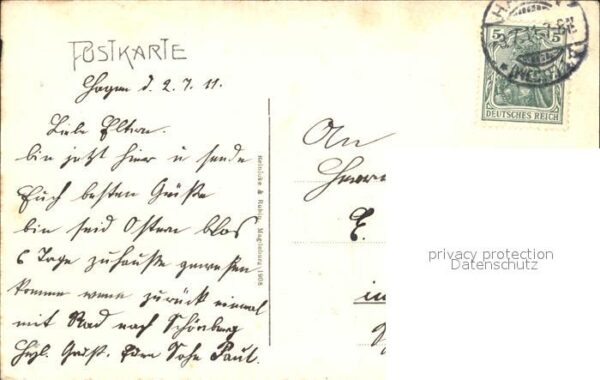 POSTKARTE
Hagen d. 2.7.11.
Liebe Eltern.
bin jetzt hier u sende
Euch besten Grüße
bin seid Ostern blos
6 Tage zuhause gewesen
komme wenn zurück einmal
mit Rad nach Schönberg
Hzl. Gruß. Euer Sohn Paul.
Reinicke & Rubin, Magdeburg 1908
An
Herrn
E.
in
5 5
DEUTSCHES REICH
(WESTF.)
privacy protection
Datenschutz